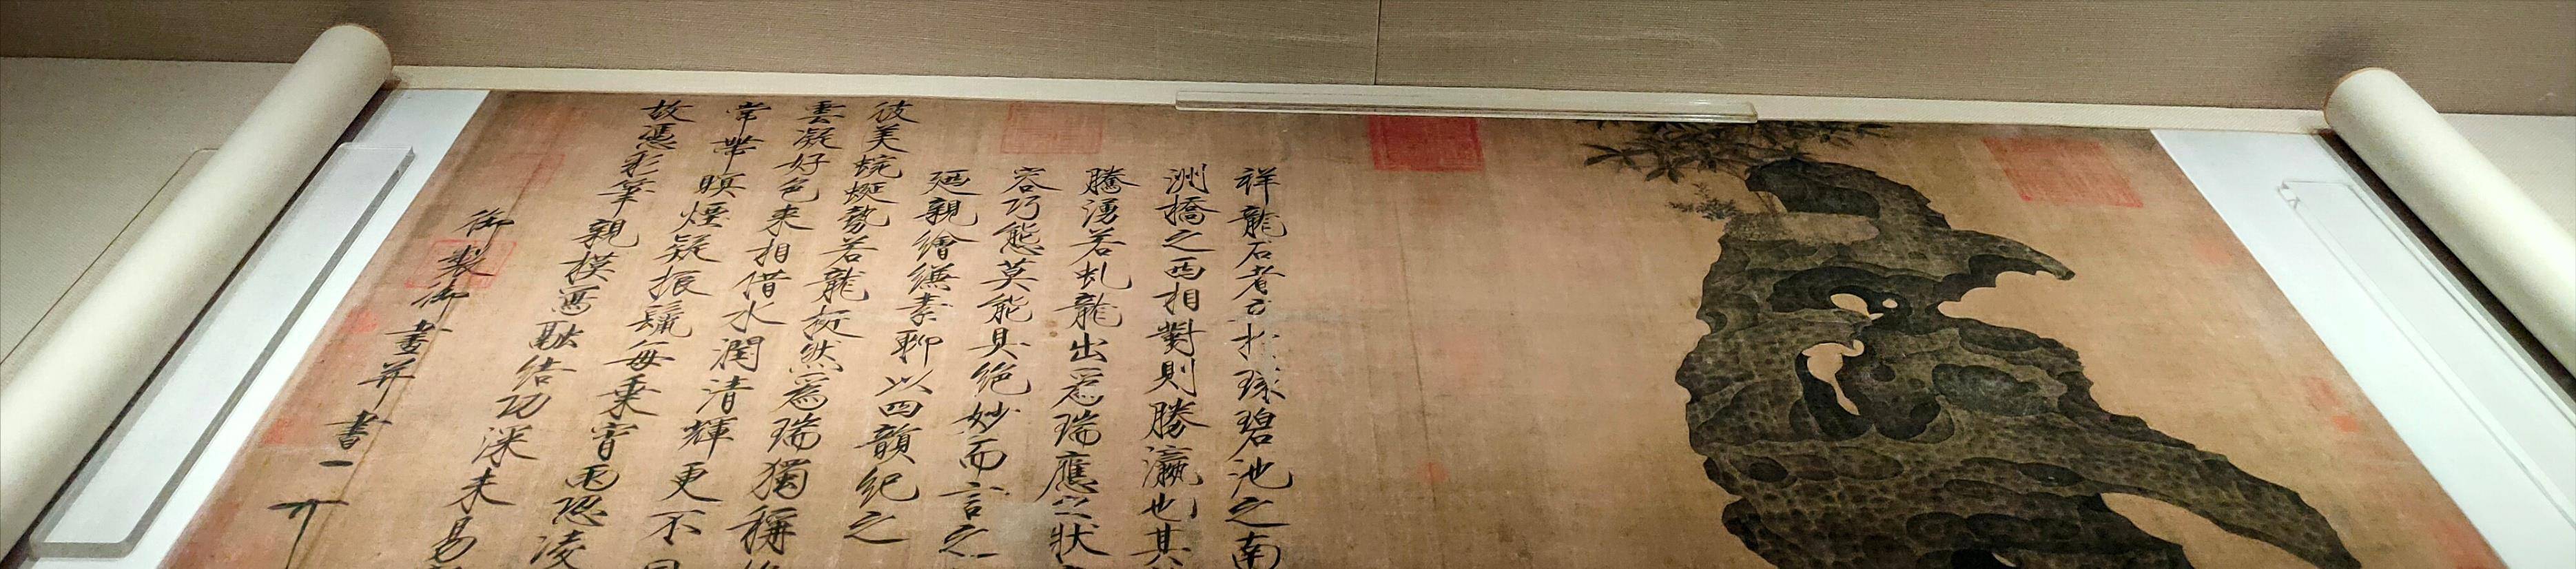 祥龍石者立於環碧池之南
洲橋之西相對則勝瀛也其
騰湧若虬龍出為瑞應之状
容巧態莫能具絶妙而言之
廼親繪縑素聊以四韻紀之
彼美蜿蜒勢若龍挺然為瑞獨稱
雲凝好色来相借水潤清輝更不
常帶暝煙疑振鬛每乗宵雨恐凌
故憑彩筆親模寫融結功深未易
御製御畫并書